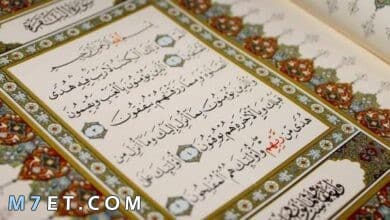 بسم الله الرحمن الرحيم
الم ذلك الكتاب لا ريب فيه هدى
للمتقين الذين يؤمنون بالغيب ويقيمون
الصلاة ومما رزقناهم ينفقون
والذين يؤمنون بما أنزل إليك وما أنزل من
قبلك وبالآخرة هم يوقنون أولئك على
هدى من ربهم وأولئك هم المفلحون
M7ET.COM